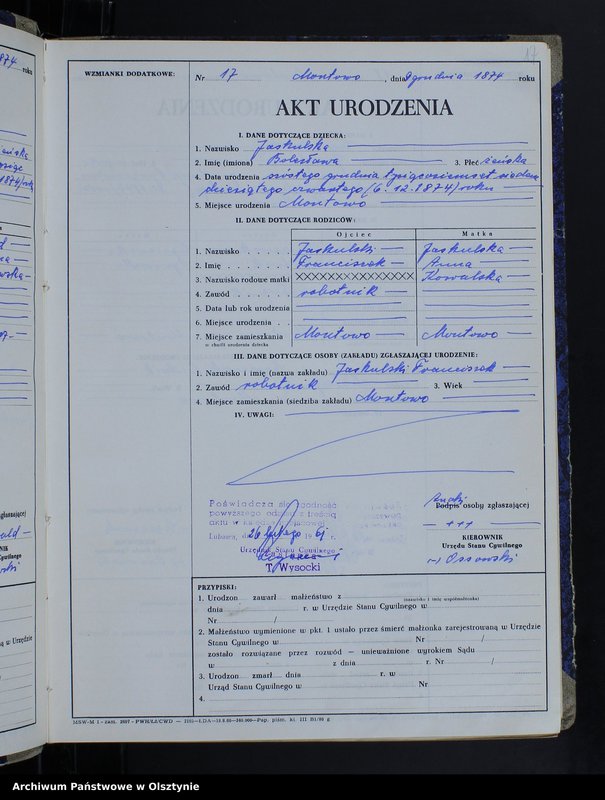 17
WZMIANKI DODATKOWE:
Nr 17 Montowo, dnia 9 grudnia 1874 roku
AKT URODZENIA
I. DANE DOTYCZĄCE DZIECKA:
1. Nazwisko Jaskulska
2. Imię (imiona) Bolesława 3. Płeć żeńska
4. Data urodzenia szóstego grudnia tysiąc osiemset siedem
dziesiątego czwartego (6. 12. 1874) roku
5. Miejsce urodzenia Montowo
II. DANE DOTYCZĄCE RODZICÓW:
Ojciec Matka
1. Nazwisko Jaskulski Jaskulska
2. Imię Franciszek Anna
3. Nazwisko rodowe matki XXXXXXXXXXXXXXX Kowalska
4. Zawód robotnik
5. Data lub rok urodzenia
6. Miejsce urodzenia
7. Miejsce zamieszkania Montowo Montowo
w chwili urodzenia dziecka
III. DANE DOTYCZĄCE OSOBY (ZAKŁADU) ZGŁASZAJĄCEJ URODZENIE:
1. Nazwisko i imię (nazwa zakładu) Jaskulski Franciszek
2. Zawód robotnik 3. Wiek
4. Miejsce zamieszkania (siedziba zakładu) Montowo
IV. UWAGI:
Poświadcza się zgodność
powyższego odpisu z treścią
aktu w księdze
Lubawa, dn. 26 lutego 1961 r.
Urzędu Stanu Cywilnego
T. Wysocki
Znaki
Podpis osoby zgłaszającej
+++
KIEROWNIK
Urzędu Stanu Cywilnego
(-) Ossowski
PRZYPISKI:
1. Urodzon zawarł małżeństwo z
(nazwisko i imię współmałżonka)
dnia r. w Urzędzie Stanu Cywilnego w
Nr /
2. Małżeństwo wymienione w pkt. 1 ustało przez śmierć małżonka zarejestrowaną w Urzędzie
Stanu Cywilnego w Nr /
zostało rozwiązane przez rozwód — unieważnione wyrokiem Sądu
w z dnia r. Nr /
3. Urodzon zmarł dnia r. w
Urząd Stanu Cywilnego w Nr
4.
Archiwum Państwowe w Olsztynie